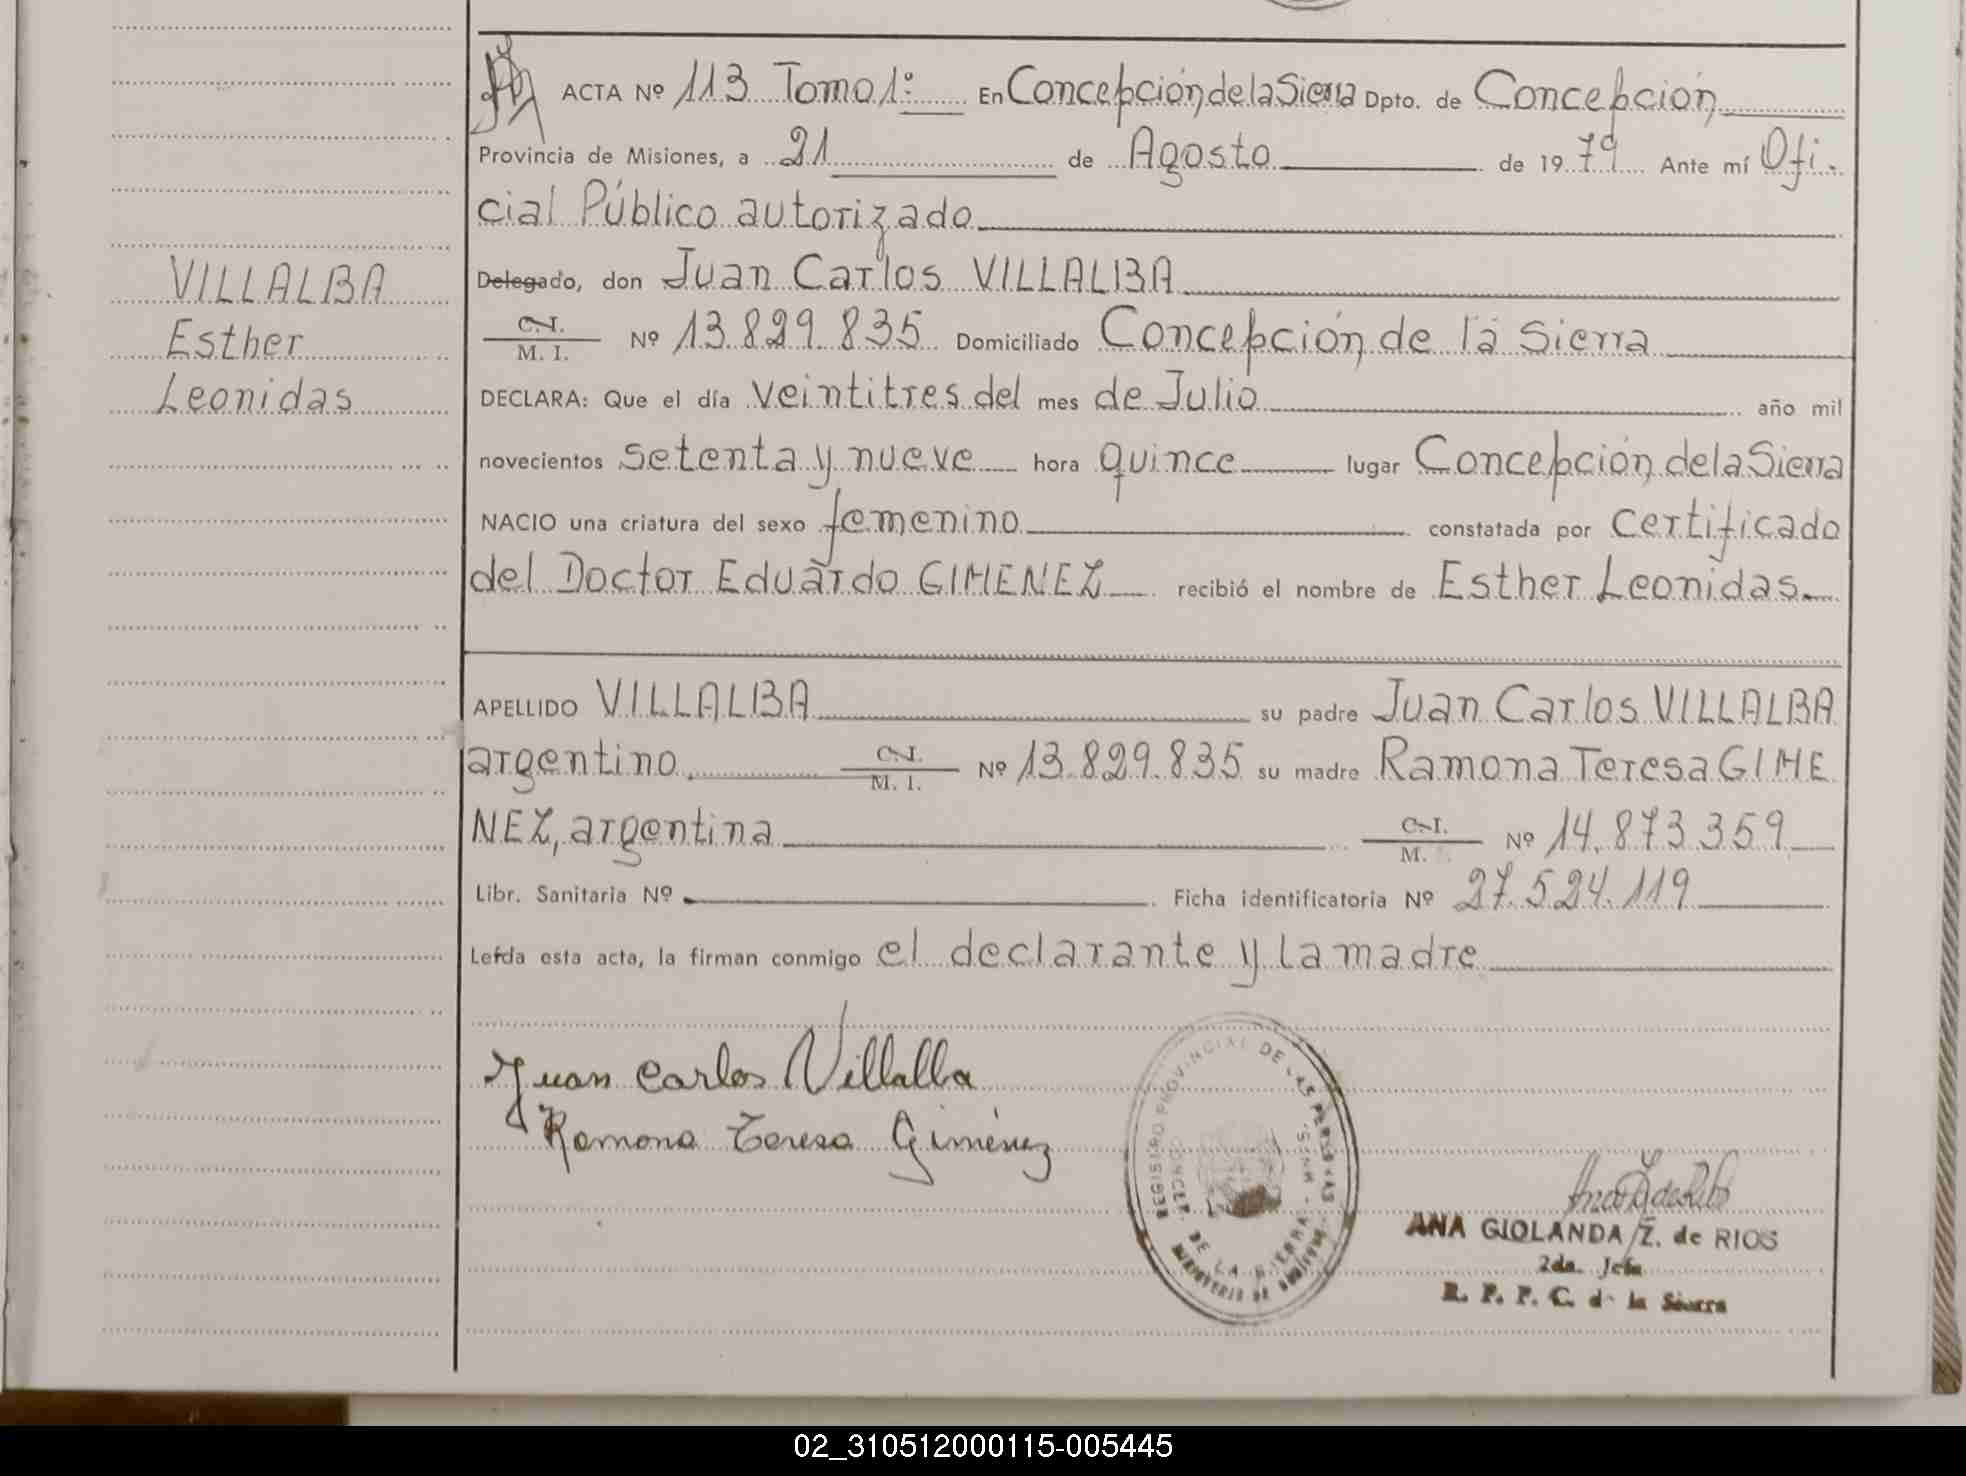 ACTA Nº 113 Tomo 1º En Concepción de la Sierra Dpto. de Concepción
Provincia de Misiones, a 21 de Agosto de 1979 Ante mí Ofi-
cial Público autorizado
VILLALBA
Delegado, don Juan Carlos VILLALBA
Esther
C.I. / M. I. Nº 13.829.835 Domiciliado Concepción de la Sierra
Leonidas
DECLARA: Que el día veintitres del mes de Julio año mil
novecientos setenta y nueve hora quince lugar Concepción de la Sierra
NACIO una criatura del sexo femenino constatada por certificado
del Doctor Eduardo GIMENEZ recibió el nombre de Esther Leonidas.
APELLIDO VILLALBA su padre Juan Carlos VILLALBA
argentino, C.I. / M. I. Nº 13.829.835 su madre Ramona Teresa GIME
NEZ, argentina C.I. / M. Nº 14.873.359
Libr. Sanitaria Nº Ficha identificatoria Nº 27.524.119
Leída esta acta, la firman conmigo el declarante y la madre
Juan Carlos Villalba
Ramona Teresa Giménez
REGISTRO PROVINCIAL DE LAS PERSONAS
DE LA SIERRA
MINISTERIO DE
ANA GIOLANDA Z. de RIOS
2da. Jefa
R. P. P. C. de la Sierra
02_310512000115-005445